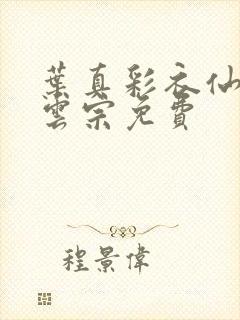 葉真彩衣仙
雲宗免費
程景偉